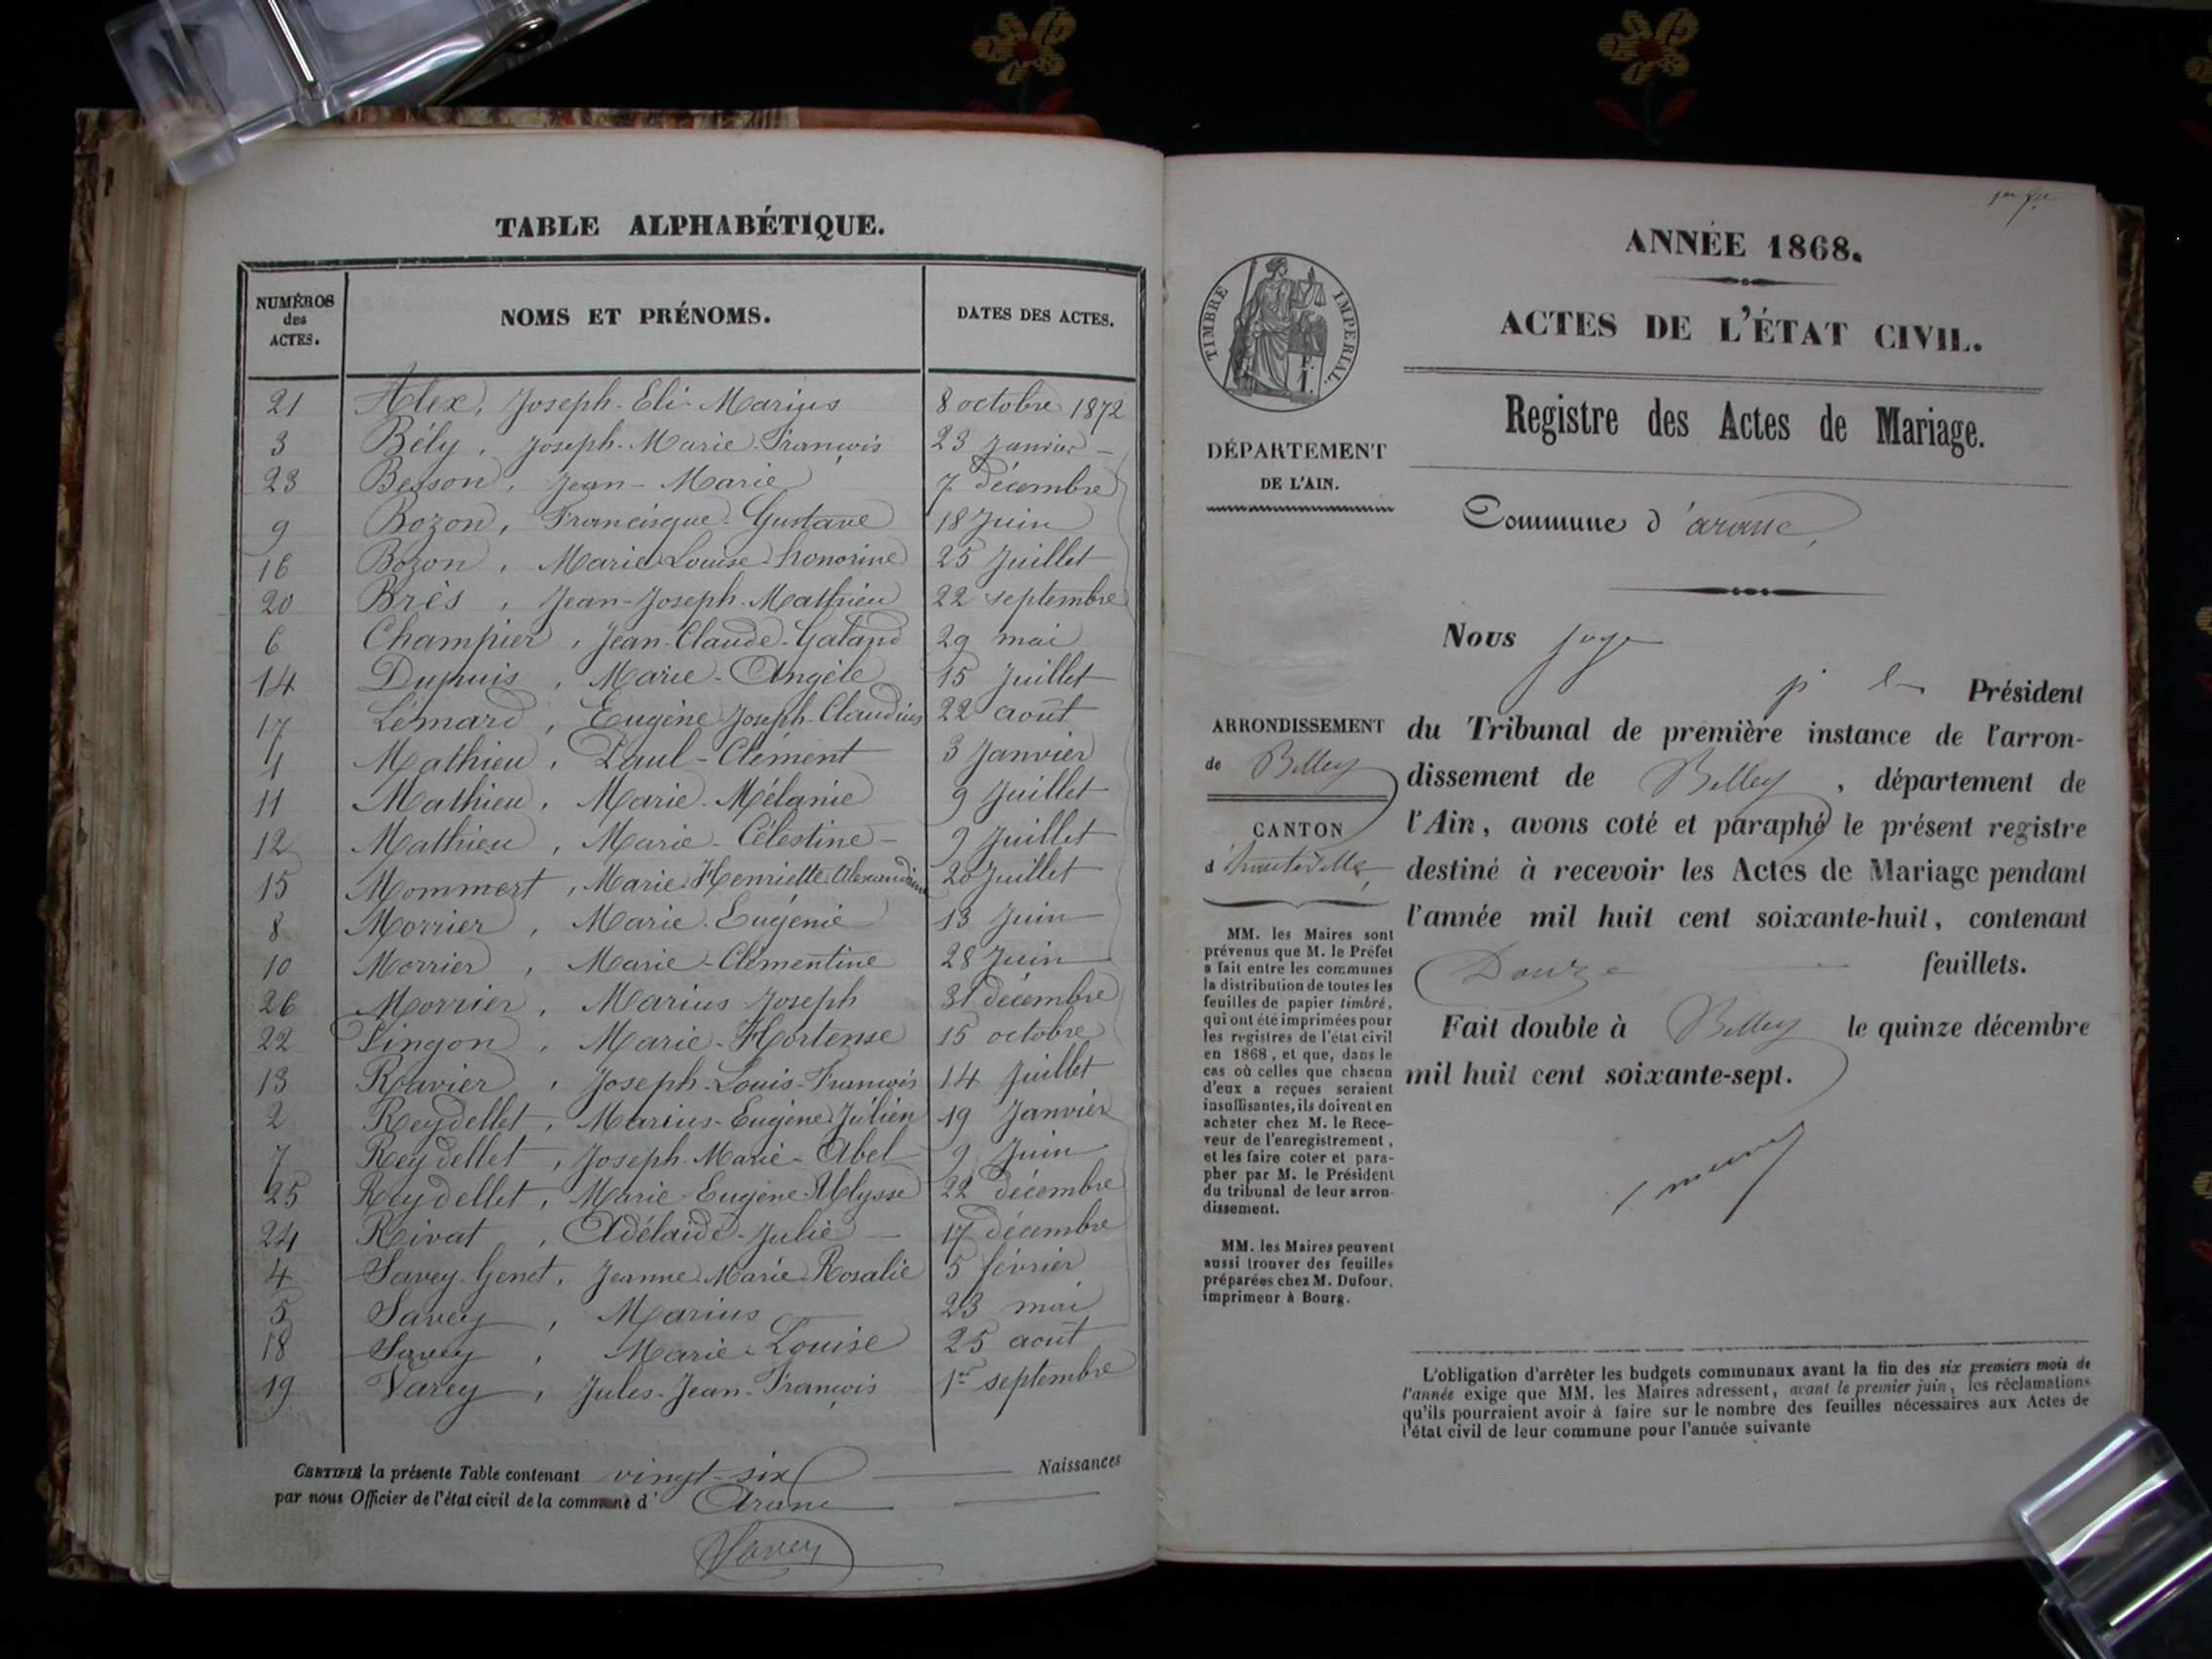 TABLE ALPHABÉTIQUE.
NUMÉROS des ACTES. NOMS ET PRÉNOMS. DATES DES ACTES.
21 Alex, Joseph-Eli-Marius 8 octobre 1872
3 Bély, Joseph-Marie-François 23 Janvier -
23 Besson, Jean-Marie 7 décembre
9 Bozon, Francisque-Gustave 18 Juin
16 Bozon, Marie Louise-honorine 25 Juillet
20 Brès, Jean-Joseph-Mathieu 22 septembre
6 Champier, Jean-Claude-Galand 29 mai
14 Dupuis, Marie-Angèle 15 Juillet
17 Lémard, Eugène-Joseph-Claudius 22 août
1 Mathieu, Paul-Clément 3 Janvier
11 Mathieu, Marie-Mélanie 9 Juillet
12 Mathieu, Marie-Célestine- 9 Juillet
15 Mommert, Marie-Henriette 20 Juillet
8 Morrier, Marie-Eugénie 13 Juin
10 Morrier, Marie-Clémentine 28 Juin
26 Morrier, Marius Joseph 31 décembre
22 Pingon, Marie-Hortense 15 octobre
13 Ravier, Joseph-Louis-François 14 Juillet
2 Reydellet, Marius-Eugène Julien 19 Janvier
7 Reydellet, Joseph-Marie-Abel 9 Juin
25 Reydellet, Marie-Eugène-Ulysse 22 décembre
24 Rivat, Adélaïde-Julie 17 décembre
4 Savey-Genet, Jeanne Marie Rosalie 5 février
5 Savey, Marius 23 mai
18 Savey, Marie-Louise 25 août
19 Varey, Jules-Jean-François 1er septembre
CERTIFIÉ la présente Table contenant vingt-six Naissances
par nous Officier de l'état civil de la commune d' Aranc
Savey
ANNÉE 1868.
ACTES DE L'ÉTAT CIVIL.
Registre des Actes de Mariage.
TIMBRE IMPERIAL.
DÉPARTEMENT
DE L'AIN.
Commune d'aranc,
ARRONDISSEMENT
de Belley
CANTON
d'hauteville
MM. les Maires sont
prévenus que M. le Préfet
a fait entre les communes
la distribution de toutes les
feuilles de papier timbré,
qui ont été imprimées pour
les registres de l'état civil
en 1868, et que, dans le
cas où celles que chacun
d'eux a reçues seraient
insuffisantes, ils doivent en
acheter chez M. le Rece-
veur de l'enregistrement,
et les faire coter et para-
pher par M. le Président
du tribunal de leur arron-
dissement.
MM. les Maires peuvent
aussi trouver des feuilles
préparées chez M. Dufour,
imprimeur à Bourg.
Nous juge
Président
du Tribunal de première instance de l'arron-
dissement de Belley, département de
l'Ain, avons coté et paraphé le présent registre
destiné à recevoir les Actes de Mariage pendant
l'année mil huit cent soixante-huit, contenant
Douze feuillets.
Fait double à Belley le quinze décembre
mil huit cent soixante-sept.
L'obligation d'arrêter les budgets communaux avant la fin des six premiers mois de
l'année exige que MM. les Maires adressent, avant le premier juin, les réclamations
qu'ils pourraient avoir à faire sur le nombre des feuilles nécessaires aux Actes de
l'état civil de leur commune pour l'année suivante